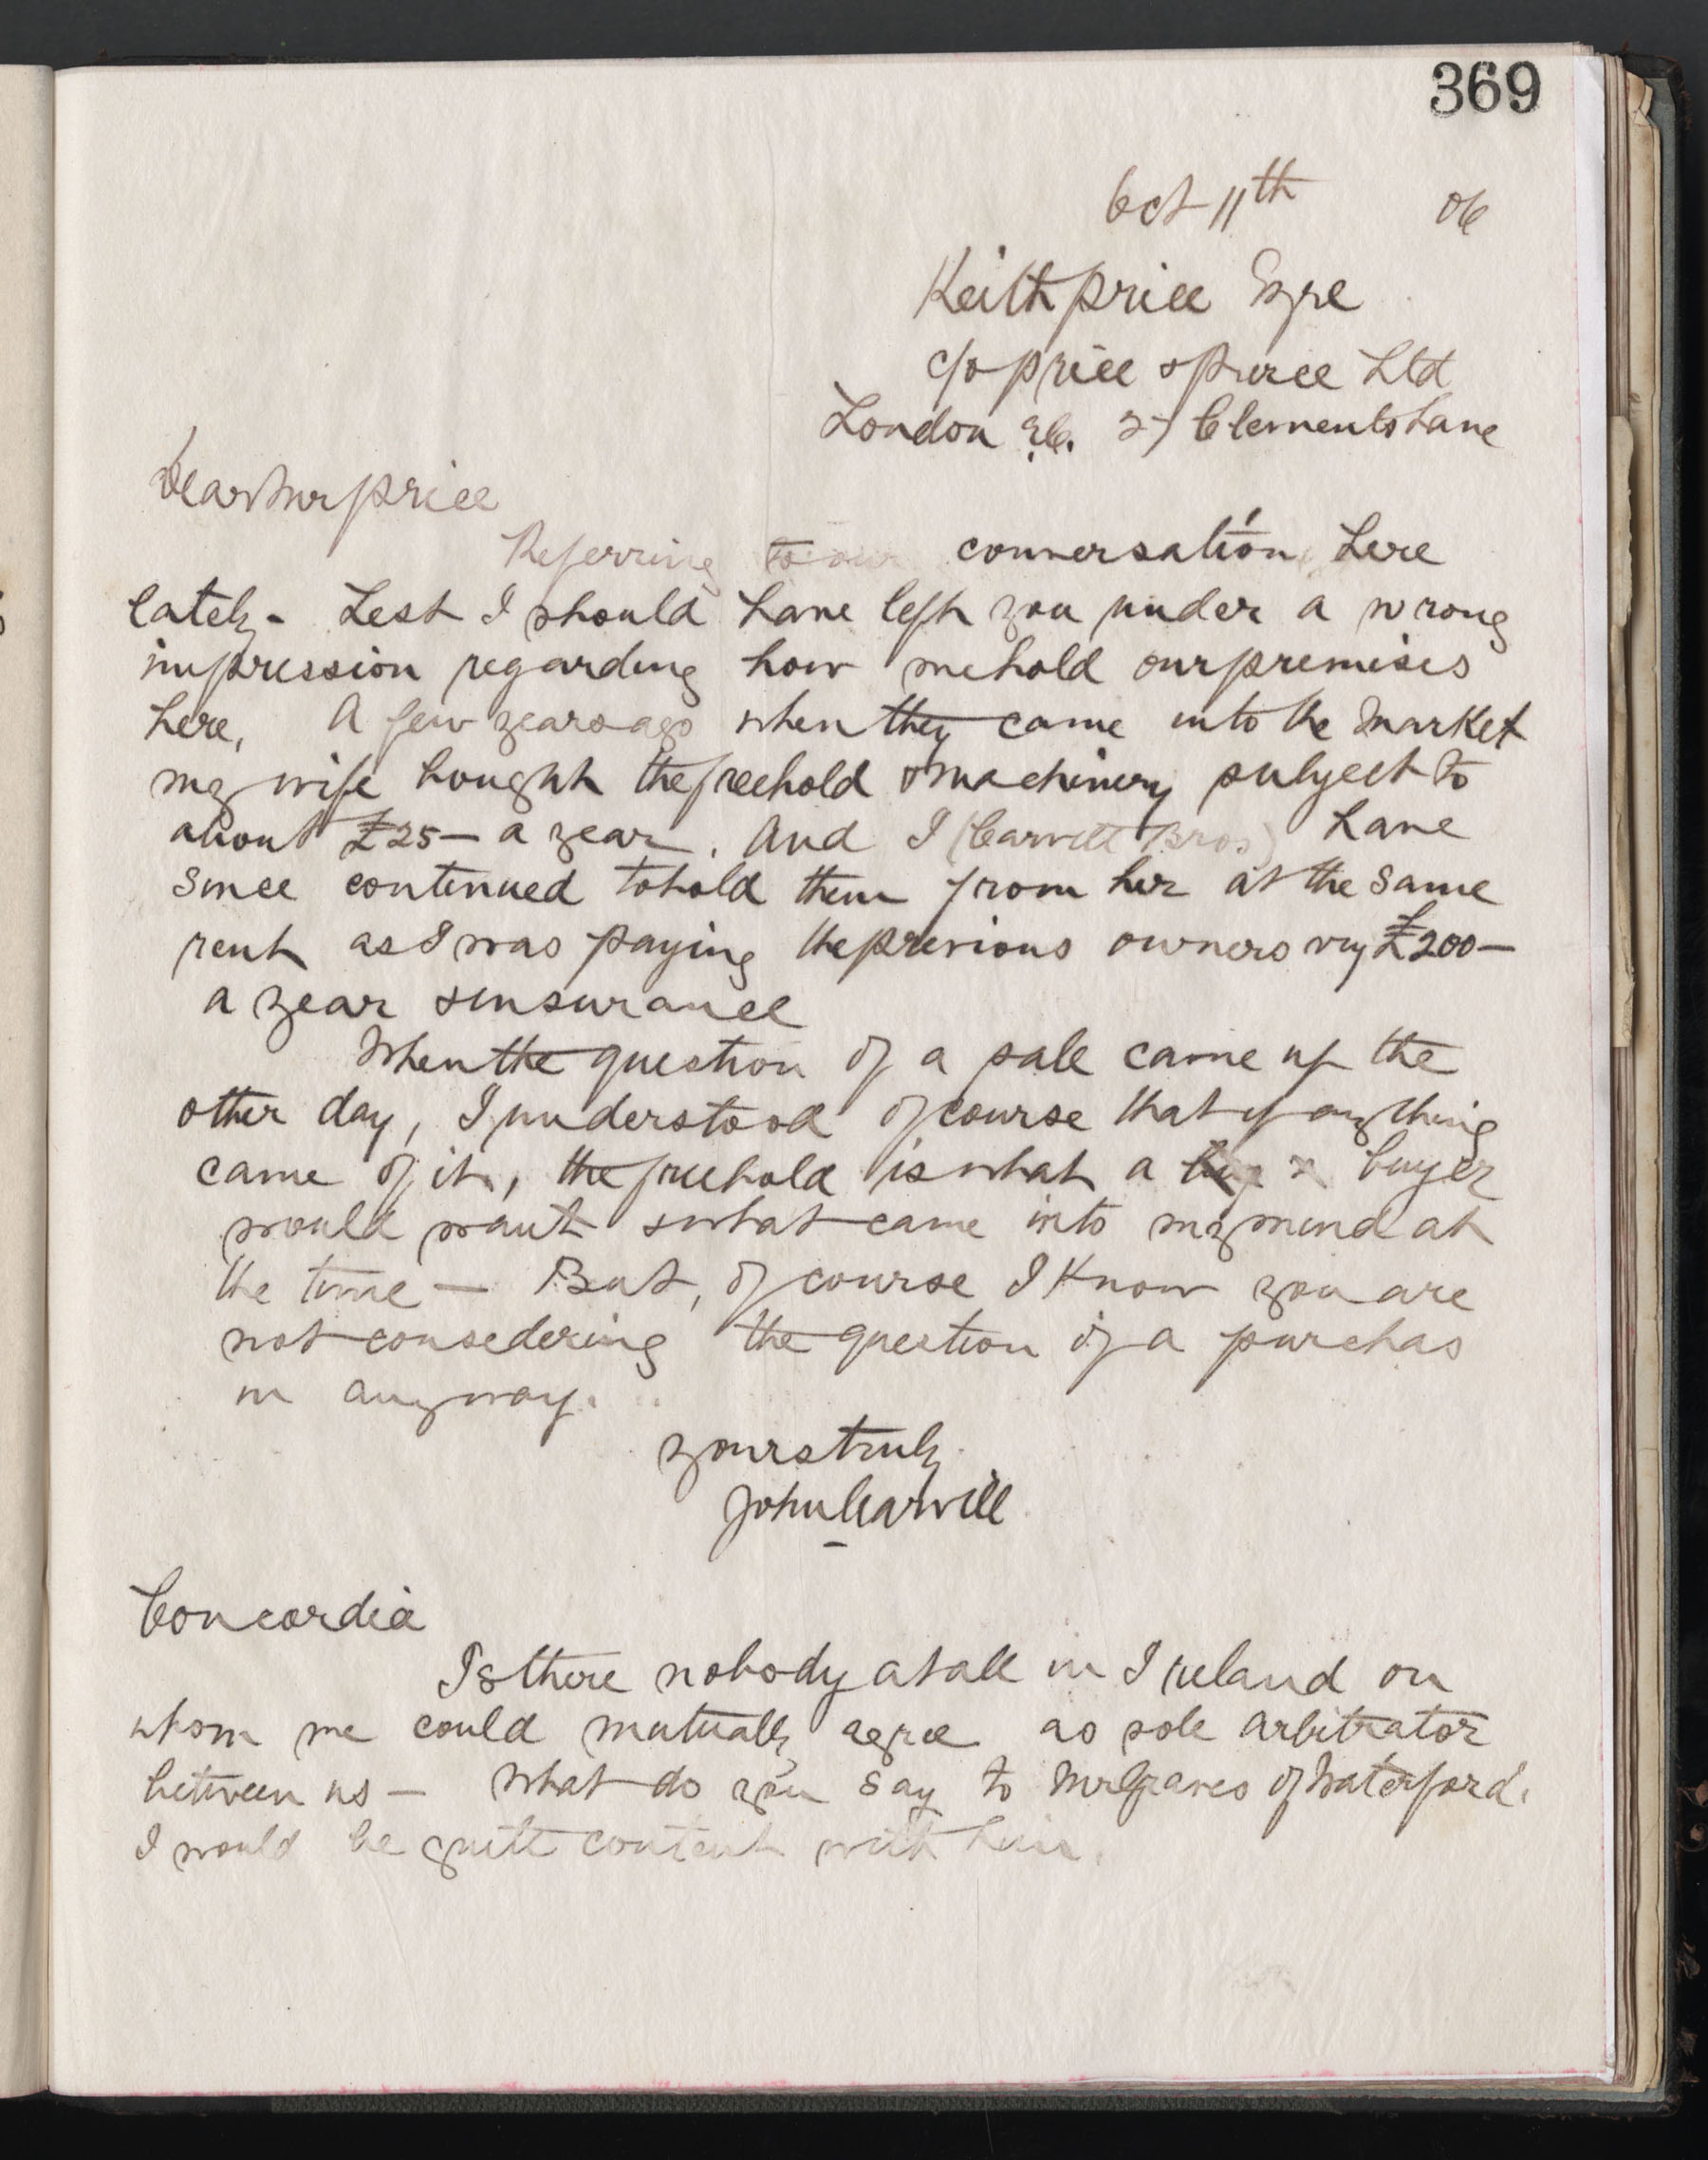 369
Oct 11th 06
Keith Price Esqre
c/o Price & Pierce Ltd
London E.C. 27 Clements Lane
Dear Mr Price
Referring to our conversation here
lately - Lest I should have left you under a wrong
impression regarding how we hold our premises
here, A few years ago when they came into the market
my wife bought the freehold & machinery subject to
about £25 - a year. And I (Carvill Bros) have
since continued to hold them from her at the same
rent as I was paying the previous owners viz £200 -
a year & insurance
When the question of a sale came up the
other day, I understood of course that if anything
came of it, the freehold is what a buyer
would want & what came into my mind at
the time - But, of course I know you are
not consedering the question of a purchas
in anyway.
Yours truly
John Carvill
Concordia
Is there nobody at all in Ireland on
whom we could mutually agree as sole arbitrator
between us - What do you say to Mr Graves of Waterford.
I would be quite content with him.